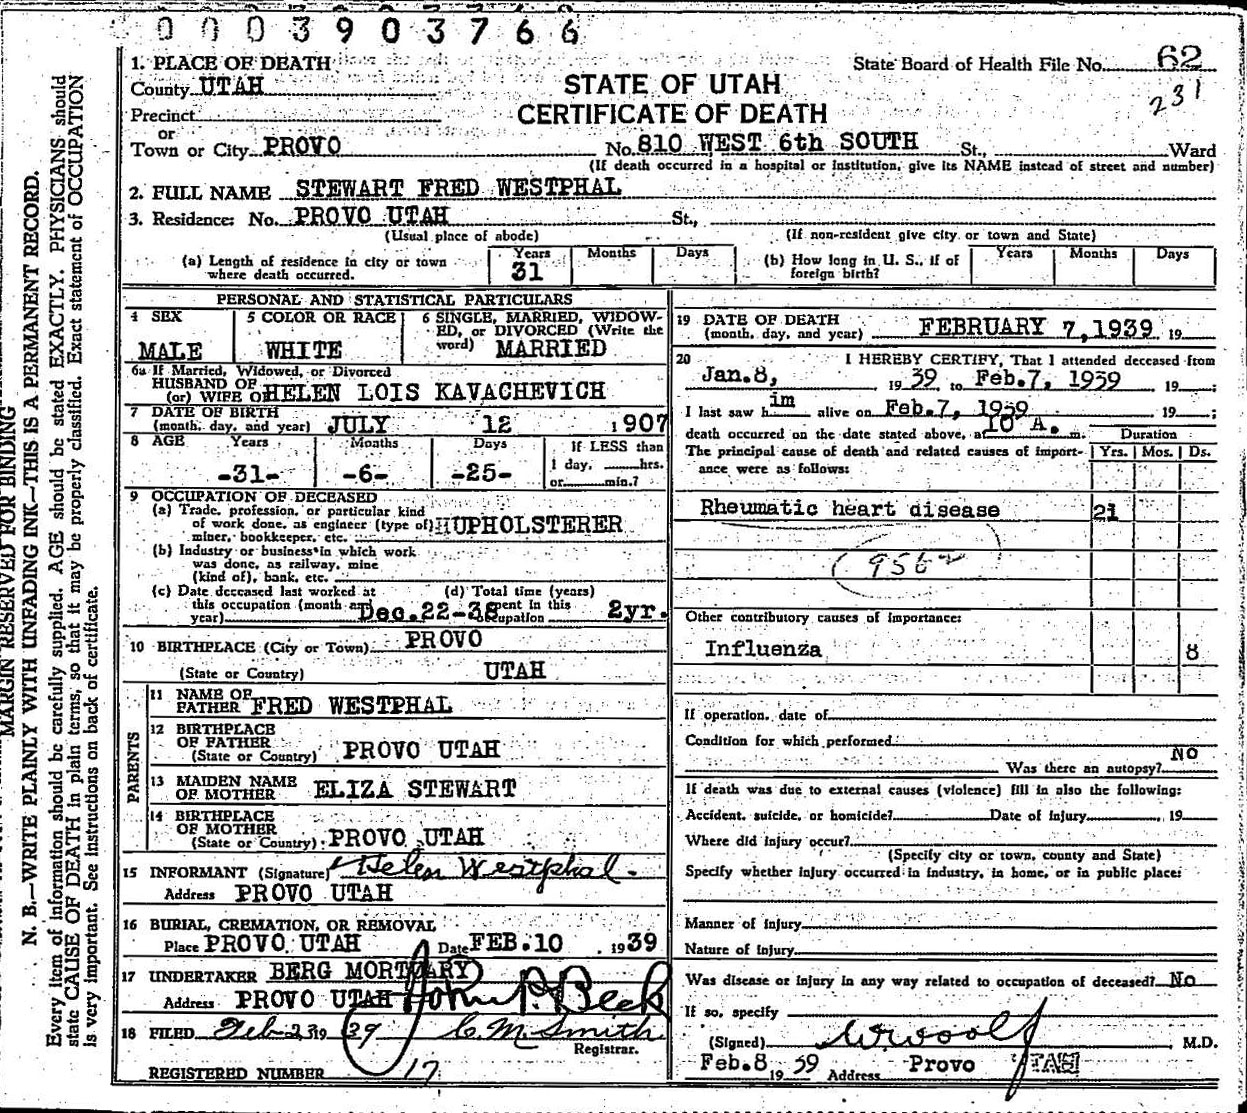 0003903766
1. PLACE OF DEATH
State Board of Health File No. 62
County UTAH
STATE OF UTAH
231
Precinct
CERTIFICATE OF DEATH
or
Town or City PROVO No. 810 WEST 6th SOUTH St., Ward
(If death occurred in a hospital or institution, give its NAME instead of street and number)
2. FULL NAME STEWART FRED WESTPHAL
3. Residence: No. PROVO UTAH St.,
(Usual place of abode) (If non-resident give city or town and State)
(a) Length of residence in city or town where death occurred. Years 31 Months Days
(b) How long in U. S., if of foreign birth? Years Months Days
PERSONAL AND STATISTICAL PARTICULARS
4 SEX MALE
5 COLOR OR RACE WHITE
6 SINGLE, MARRIED, WIDOW-
ED, or DIVORCED (Write the
word) MARRIED
6a If Married, Widowed, or Divorced
HUSBAND OF
(or) WIFE OF HELEN LOIS KAVACHEVICH
7 DATE OF BIRTH
(month, day, and year) JULY 12 1907
8 AGE Years Months Days If LESS than
-31- -6- -25- 1 day, hrs.
or min.?
9 OCCUPATION OF DECEASED
(a) Trade, profession, or particular kind
of work done, as engineer (type of) UPHOLSTERER
miner, bookkeeper, etc.
(b) Industry or business in which work
was done, as railway, mine
(kind of), bank, etc.
(c) Date deceased last worked at
this occupation (month and
year) Dec. 22-38
(d) Total time (years)
spent in this
occupation 2yr.
10 BIRTHPLACE (City or Town) PROVO
(State or Country) UTAH
PARENTS
11 NAME OF
FATHER FRED WESTPHAL
12 BIRTHPLACE
OF FATHER
(State or Country) PROVO UTAH
13 MAIDEN NAME
OF MOTHER ELIZA STEWART
14 BIRTHPLACE
OF MOTHER
(State or Country) PROVO UTAH
15 INFORMANT (Signature) Helen Westphal.
Address PROVO UTAH
16 BURIAL, CREMATION, OR REMOVAL
Place PROVO UTAH Date FEB. 10 1939
17 UNDERTAKER BERG MORTUARY
Address PROVO UTAH John P. Beck
18 FILED Feb 23 19 39 C. M. Smith
Registrar.
REGISTERED NUMBER 17
19 DATE OF DEATH
(month, day, and year) FEBRUARY 7, 1939 19
20 I HEREBY CERTIFY, That I attended deceased from
Jan. 8, 19 39 to Feb. 7, 1939 19 ;
I last saw him alive on Feb. 7, 1939 19 ;
death occurred on the date stated above, at 10 A. m.
Duration
The principal cause of death and related causes of import-
ance were as follows:
Yrs. Mos. Ds.
Rheumatic heart disease 21
Other contributory causes of importance:
Influenza 8
If operation, date of
Condition for which performed
Was there an autopsy? No
If death was due to external causes (violence) fill in also the following:
Accident, suicide, or homicide? Date of Injury 19
Where did injury occur?
(Specify city or town, county and State)
Specify whether injury occurred in industry, in home, or in public place:
Manner of Injury
Nature of Injury
Was disease or injury in any way related to occupation of deceased? No
If so, specify
(Signed) M.D.
Feb. 8 19 39 Address Provo UTAH
MARGIN RESERVED FOR BINDING
N. B.—WRITE PLAINLY WITH UNFADING INK—THIS IS A PERMANENT RECORD.
Every item of information should be carefully supplied. AGE should be stated EXACTLY. PHYSICIANS should
state CAUSE OF DEATH in plain terms, so that it may be properly classified. Exact statement of OCCUPATION
is very important. See instructions on back of certificate.